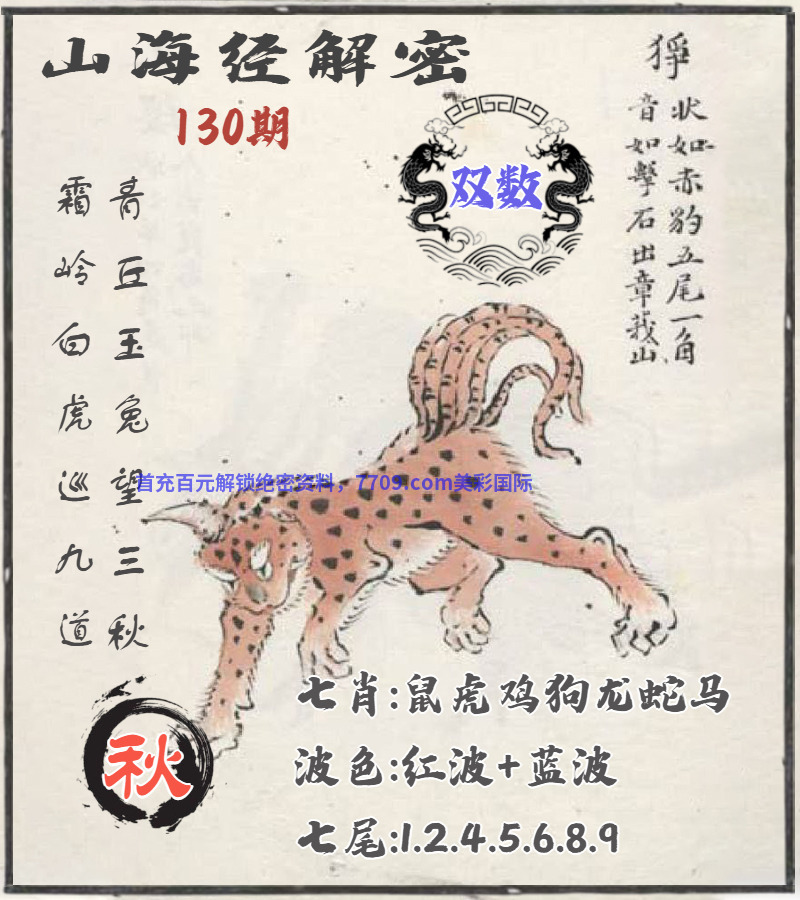 山海经解密
130期
双数
狰
状如赤豹五尾一角
音如擊石出章莪山
青丘玉兔望三秋
霜岭白虎巡九道
首充百元解锁绝密资料，7709.com美彩国际
秋
七肖:鼠虎鸡狗龙蛇马
波色:红波+蓝波
七尾:1.2.4.5.6.8.9